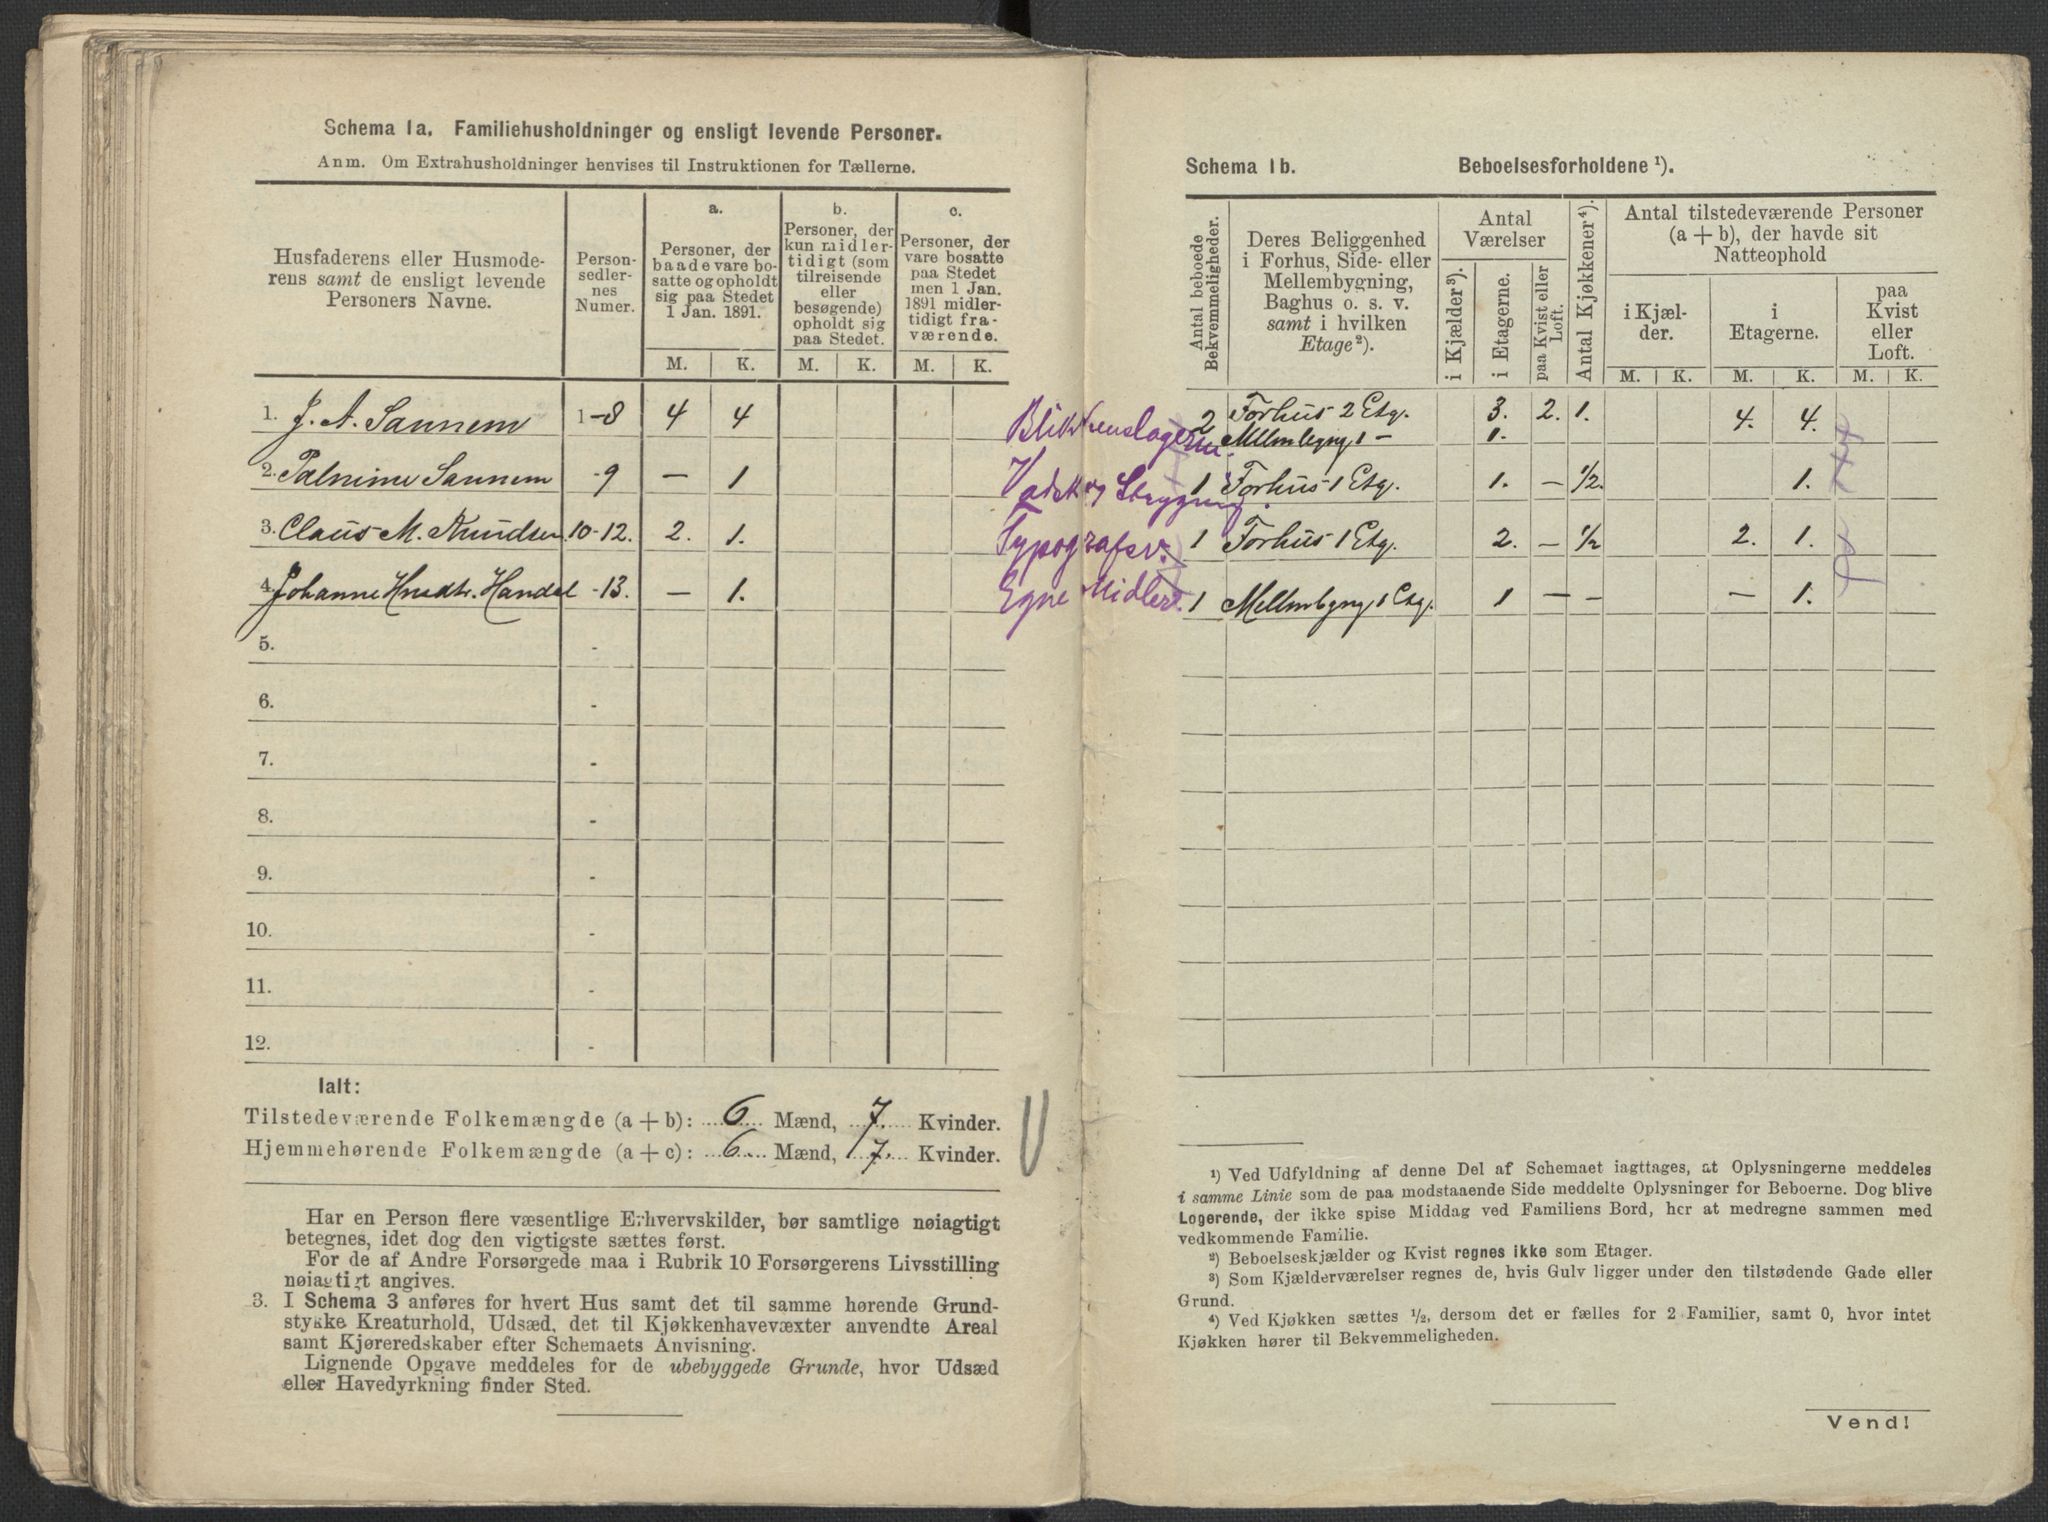 Schema 1a. Familiehusholdninger og ensligt levende Personer.
Anm. Om Extrahusholdninger henvises til Instruktionen for Tællerne.
Husfaderens eller Husmode-
rens samt de ensligt levende
Personers Navne.
Person-
sedler-
nes
Numer.
a.
Personer, der
baade vare bo-
satte og opholdt
sig paa Stedet
1 Jan. 1891.
b.
Personer, der
kun midler-
tidigt (som
tilreisende
eller
besøgende)
opholdt sig
paa Stedet.
c.
Personer, der
vare bosatte
paa Stedet
men 1 Jan.
1891 midler-
tidigt fra-
værende.
M. K. M. K. M. K.
1. J. A. Sannem 1-8 4 4
2. Palnime Sannem -9 — 1
3. Claus M. Knudsen 10-12. 2. 1.
4. Johanne Handel -13. — 1.
5. -
6. -
7. -
8. -
9. -
10. -
11. -
12. -
Ialt:
Tilstedeværende Folkemængde (a + b): 6 Mænd, 7. Kvinder.
Hjemmehørende Folkemængde (a + c): 6 Mænd, 7. Kvinder.
Har en Person flere væsentlige Erhvervskilder, bør samtlige nøiagtigt
betegnes, idet dog den vigtigste sættes først.
For de af Andre Forsørgede maa i Rubrik 10 Forsørgerens Livsstilling
nøiagtigt angives.
3. I Schema 3 anføres for hvert Hus samt det til samme hørende Grund-
stykke Kreaturhold, Udsæd, det til Kjøkkenhavevæxter anvendte Areal
samt Kjøreredskaber efter Schemaets Anvisning.
Lignende Opgave meddeles for de ubebyggede Grunde, hvor Udsæd
eller Havedyrkning finder Sted.
Schema 1b. Beboelsesforholdene ¹).
Antal beboede
Bekvemmeligheder.
Deres Beliggenhed
i Forhus, Side- eller
Mellembygning,
Baghus o. s. v.
samt i hvilken
Etage²).
Antal
Værelser
i Kjælder³).
i Etagerne.
paa Kvist eller
Loft.
Antal Kjøkkener⁴).
Antal tilstedeværende Personer
(a + b), der havde sit
Natteophold
i Kjæl-
der.
i
Etagerne.
paa
Kvist
eller
Loft.
M. K. M. K. M. K.
Blikkenslagerm. 2 Forhus 2 Etg. 3. 2. 1. 4. 4.
Mellmbygng 1 — 1.
Vask og Strygning. 1 Forhus 1 Etg. 1. — 1/2. 1.
Typografsv. 1 Forhus 1 Etg. 2. — 1/2 2. 1.
Egne Midler. 1 Mellmbygng 1 Etg. 1 — — — 1.
¹) Ved Udfyldning af denne Del af Schemaet iagttages, at Oplysningerne meddeles
i samme Linie som de paa modstaaende Side meddelte Oplysninger for Beboerne. Dog blive
Logerende, der ikke spise Middag ved Familiens Bord, her at medregne sammen med
vedkommende Familie.
²) Beboelseskjælder og Kvist regnes ikke som Etager.
³) Som Kjælderværelser regnes de, hvis Gulv ligger under den tilstødende Gade eller
Grund.
⁴) Ved Kjøkken sættes ½, dersom det er fælles for 2 Familier, samt 0, hvor intet
Kjøkken hører til Bekvemmeligheden.
Vend!